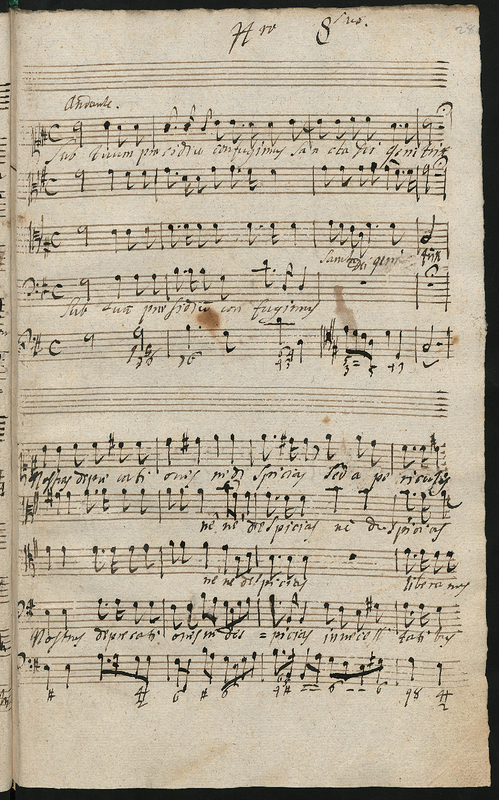 Nro 8vo.
Andante.
Sub tuum praesidiu confugimus San cta dei genitrix
Sancta Dei geni trix
Sub tuu praesidiu con fugimus
Nostras depre cati ones ne des picias sed a pe riculis
ne ne despicias ne despicias
ne ne despicias libera nos
Nostras deprecati ones ne des = picias in necessi tatibus